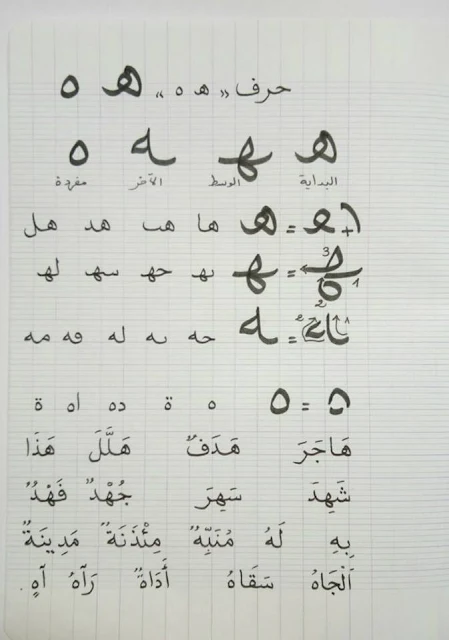 حرف « هـ ه » هـ ه
هـ ـهـ ـه ه
البداية الوسط الآخر مفردة
هـ = ها هب هد هل
ـهـ = بهـ جهـ سهـ لهـ
ـه = حه به له فه مه
ه = ه ة ده اه ة
هَاجَرَ هَدَفٌ هَلَّلَ هَذَا
شَهِدَ سَهِرَ جُهْدٌ فَهْدٌ
بِهِ لَهُ مُنَبِّهٌ مِئْذَنَةٌ مَدِينَةٌ
اَلْجَاهُ سَقَاهُ أَدَاةٌ رَآهُ آهٍ